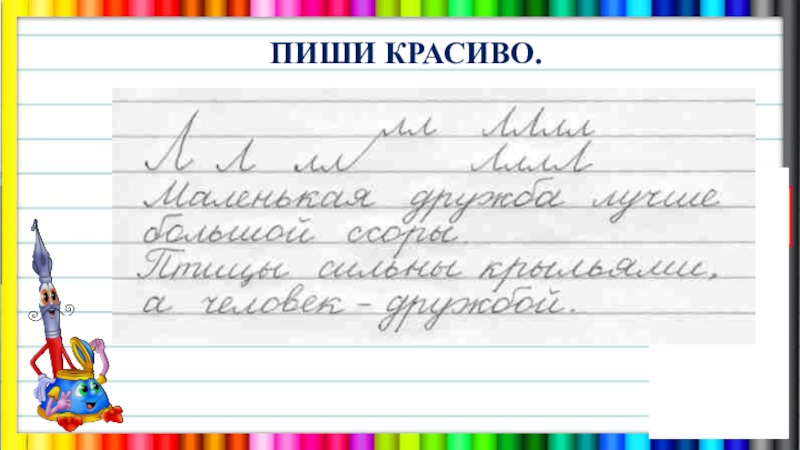 ПИШИ КРАСИВО.
лл ЛЛлл
Л Л лл ЛллЛ
Маленькая дружба лучше
большой ссоры.
Птицы сильны крыльями,
а человек - дружбой.